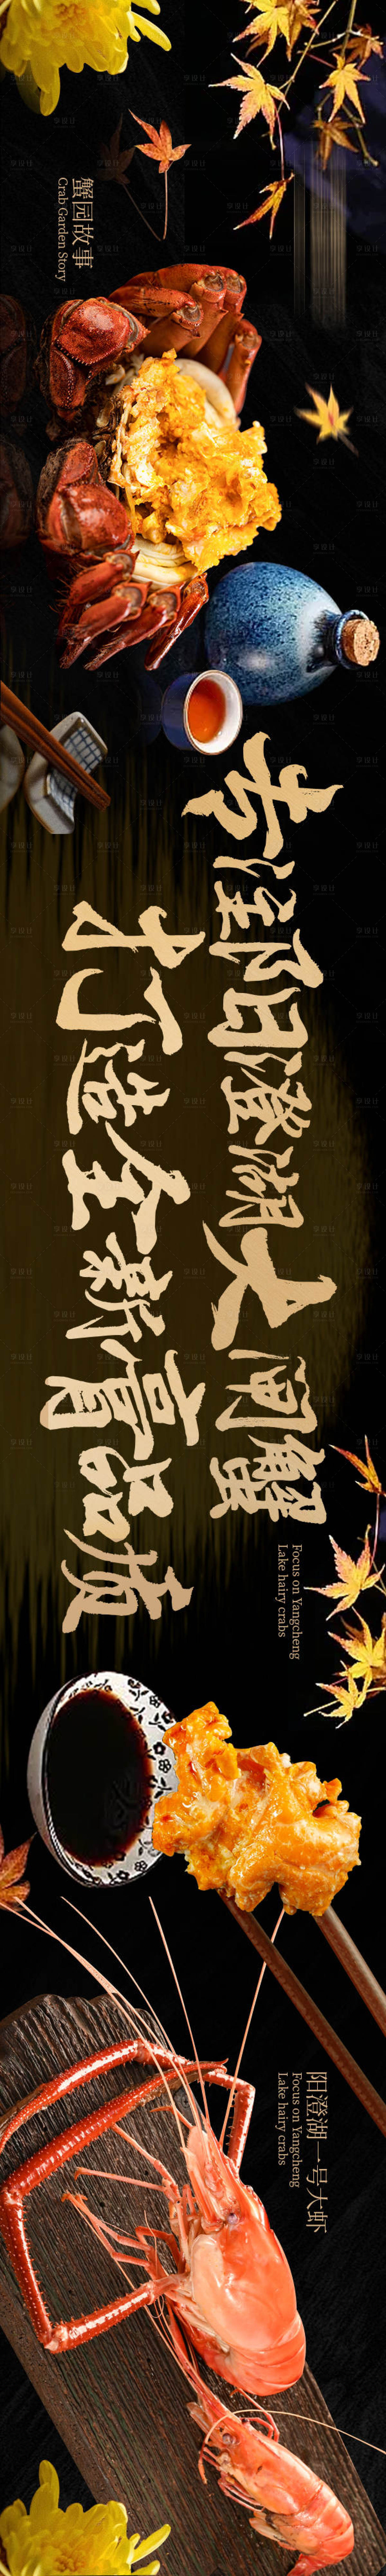 蟹园故事
Crab Garden Story
专注阳澄湖大闸蟹
打造全新膏品质
Focus on Yangcheng
Lake hairy crabs
阳澄湖一号大虾
Focus on Yangcheng
Lake hairy crabs